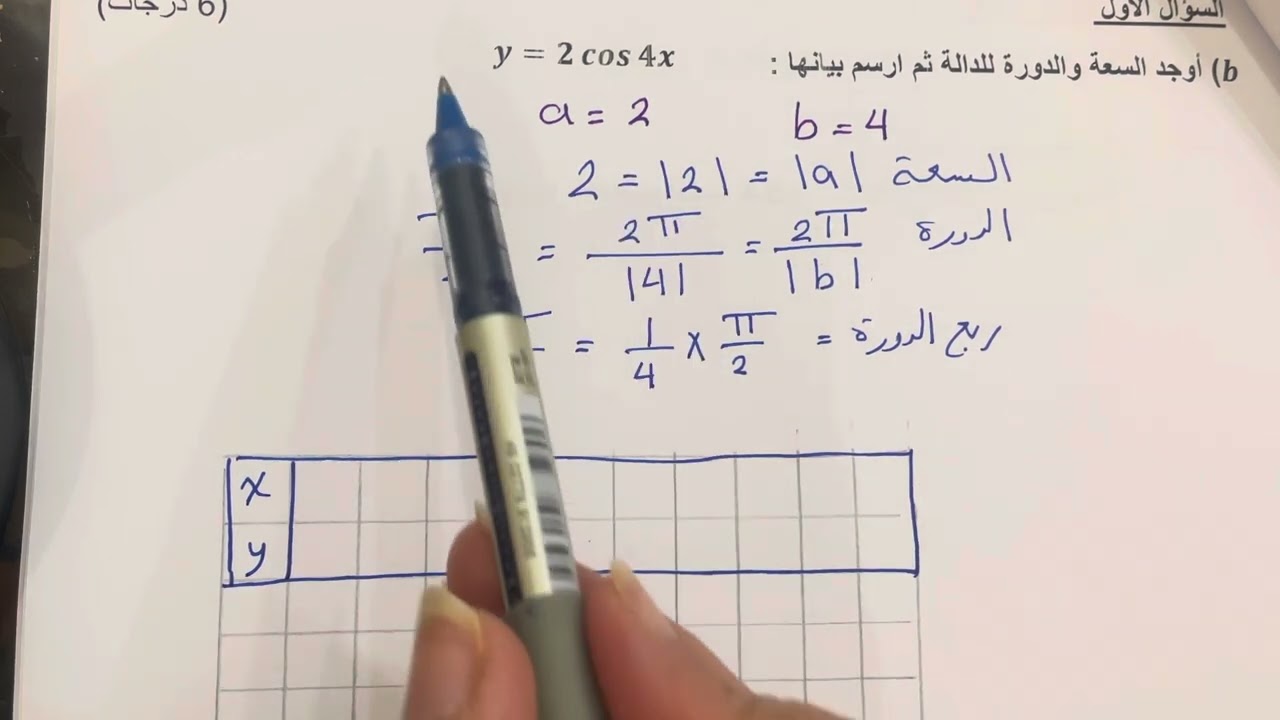 السؤال الأول
(6 درجات)
b) أوجد السعة والدورة للدالة ثم ارسم بيانها : y = 2 cos 4x
a = 2 b = 4
السعة |a| = |2| = 2
الدورة 2π/|b| = 2π/|4| =
ربع الدورة = π/2 × 1/4 =
x
y